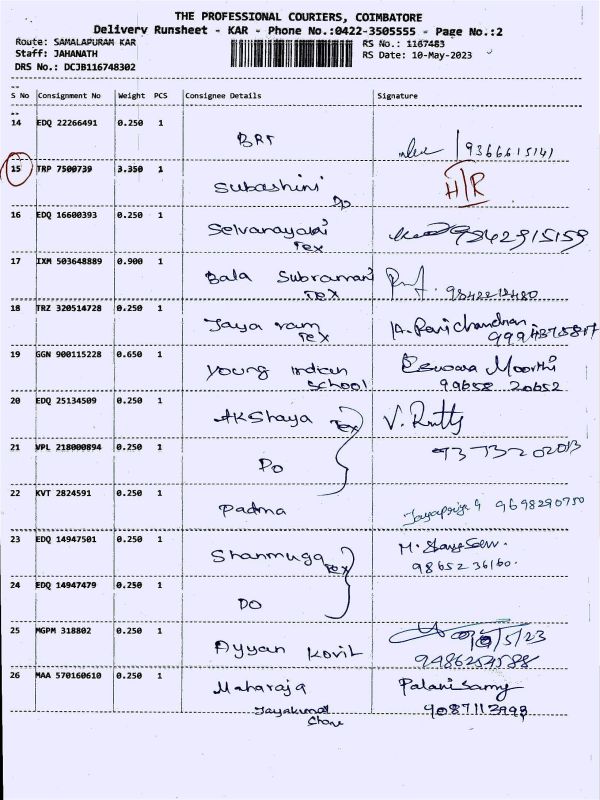 THE PROFESSIONAL COURIERS, COIMBATORE
Delivery Runsheet - KAR - Phone No.:0422-3505555 - Page No.:2
Route: SAMALAPURAM KAR RS No.: 1167483
Staff: JAHANATH RS Date: 10-May-2023
DRS No.: DCJB116748302
S No Consignment No Weight PCS Consignee Details Signature
14 EDQ 22266491 0.250 1 BRT 9366615141
15 TRP 7500739 3.350 1 Subashini H/R
Do
16 EDQ 16600393 0.250 1 Selvanayaki 9842915159
Tex
17 IXM 503648889 0.900 1 Bala Subramani
Tex
18 TRZ 320514728 0.250 1 Jaya ram A. Ravichandran
Tex
19 GGN 900115228 0.650 1 young indian Eswara Moorthi
School 99658 20652
20 EDQ 25134509 0.250 1 AKShaya Tex
21 VPL 218000894 0.250 1 Do 9373202013
22 KVT 2824591 0.250 1 Padma Jayapriya 9698290750
23 EDQ 14947501 0.250 1 Shanmuga
Tex 98652 36160.
24 EDQ 14947479 0.250 1 Do
25 MGPM 318802 0.250 1 Ayyan Kovil /5/23
9486254588
26 MAA 570160610 0.250 1 Maharaja Palanisamy
Jayakumar 9087113993
Store